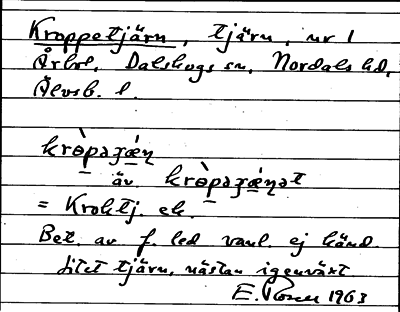 Kroppetjärn, tjärn, nr 1
Ärbol, Dalskogs sn, Nordals hd,
Älvsb. l.
krɵ̀pəʒǽɳ
äv. krɵ̀pəʒǽɳət
= Kroktj. ek.
Bet. av f. led vanl. ej känd.
Litet tjärn, nästan igenväxt.
E. Rosen 1963